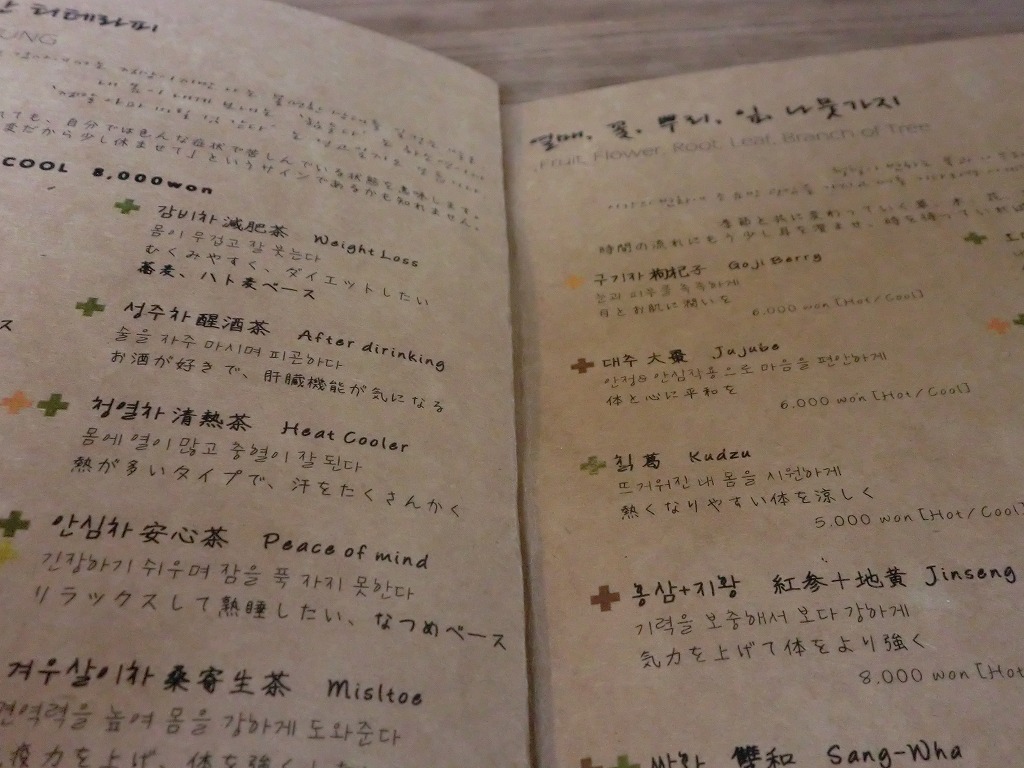 티테라피
れても、自分では色んな症状で苦しんでいる状態を意味します。
変だから少し休ませて」というサインであるかも知れません。
COOL 8,000won
감비차 減肥茶 Weight Loss
몸이 무겁고 잘 붓는다
むくみやすく、ダイエットしたい
蕎麦、ハト麦ベース
성주차 醒酒茶 After dirinking
술을 자주 마시며 피곤하다
お酒が好きで、肝臓機能が気になる
청열차 清熱茶 Heat Cooler
몸에 열이 많고 충혈이 잘 된다
熱が多いタイプで、汗をたくさんかく
안심차 安心茶 Peace of mind
긴장하기 쉬우며 잠을 푹 자지 못한다
リラックスして熟睡したい、なつめベース
겨우살이차 桑寄生茶 Misltoe
면역력을 높여 몸을 강하게 도와준다
疫力を上げ、体を強く
열매, 꽃, 뿌리, 잎, 나뭇가지
Fruit, Flower, Root, Leaf, Branch of Tree
季節と共に変わっていく葉、木、花、
時間の流れにもう少し耳を澄ませ、時を待っていれば
구기자 枸杞子 Goji Berry
눈과 피부를 촉촉하게
目とお肌に潤いを
6,000 won [Hot/Cool]
대추 大棗 Jujube
안정& 안심작용으로 마음을 편안하게
体と心に平和を
6,000 won [Hot/Cool]
칡 葛 Kudzu
뜨거워진 내 몸을 시원하게
熱くなりやすい体を涼しく
5,000 won [Hot/Cool]
홍삼+지황 紅参+地黄 Jinseng
기력을 보충해서 보다 강하게
気力を上げて体をより強く
8,000 won [Hot
쌍화 雙和 Sang-Wha